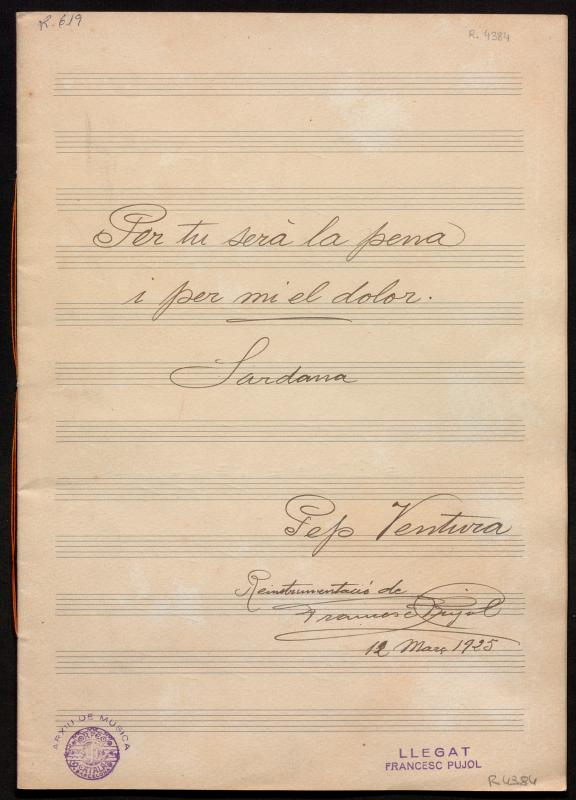 R. 619
R. 4384
Per tu serà la pena
i per mi el dolor.
Sardana
Pep Ventura
Reinstrumentació de
Francesc Pujol
12 Març 1925
ARXIU DE MÚSICA
ORFEÓ CATALÀ
LLEGAT
FRANCESC PUJOL
R. 4384